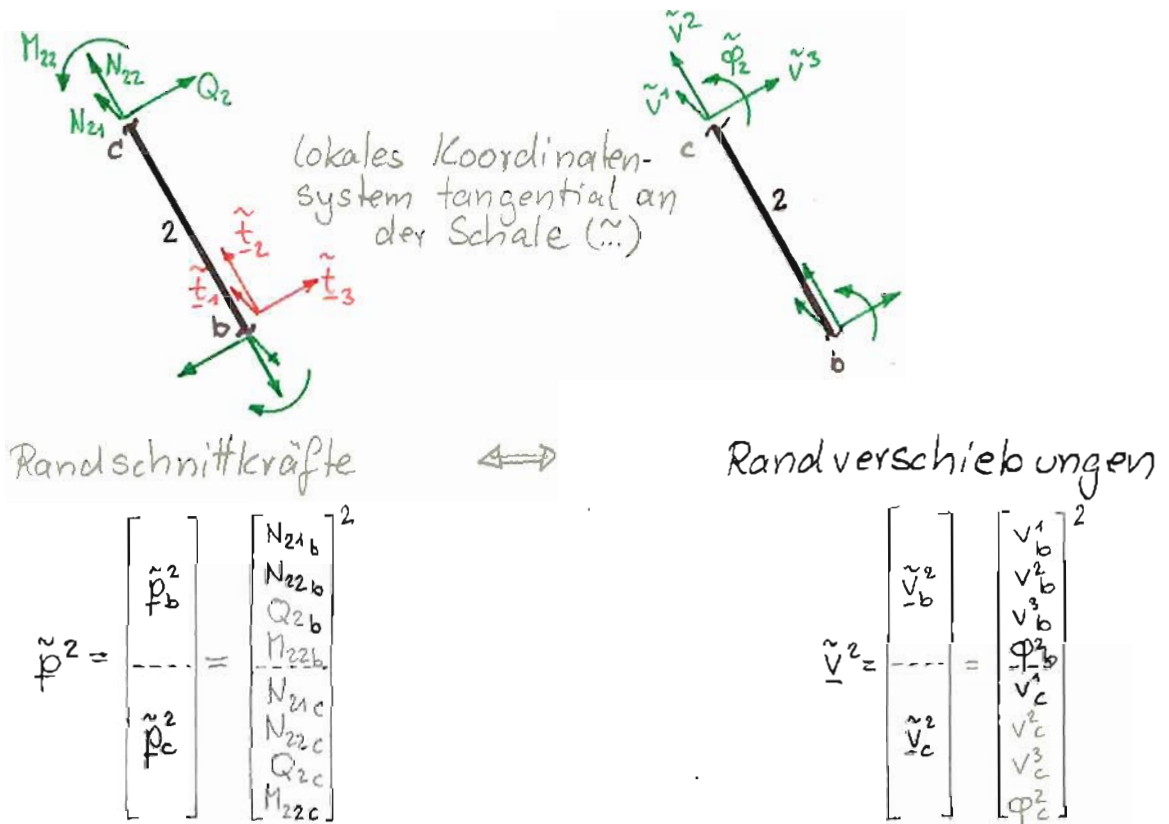 M₂₂
N₂₂
Q₂
N₂₁
c
2
t̃₂
t̃₁
t̃₃
b
lokales Koordinaten-
system tangential an
der Schale (~...)
ṽ²
φ̃₂
ṽ³
ṽ¹
c
2
b
Randschnittkräfte ⇔ Randverschiebungen
p̃² = [ p̃²b ---- p̃²c ] = [
N₂₁b
N₂₂b
Q₂b
M₂₂b
N₂₁c
N₂₂c
Q₂c
M₂₂c
]²
ṽ² = [ ṽ²b ---- ṽ²c ] = [
v¹b
v²b
v³b
φ²b
v¹c
v²c
v³c
φ²c
]²